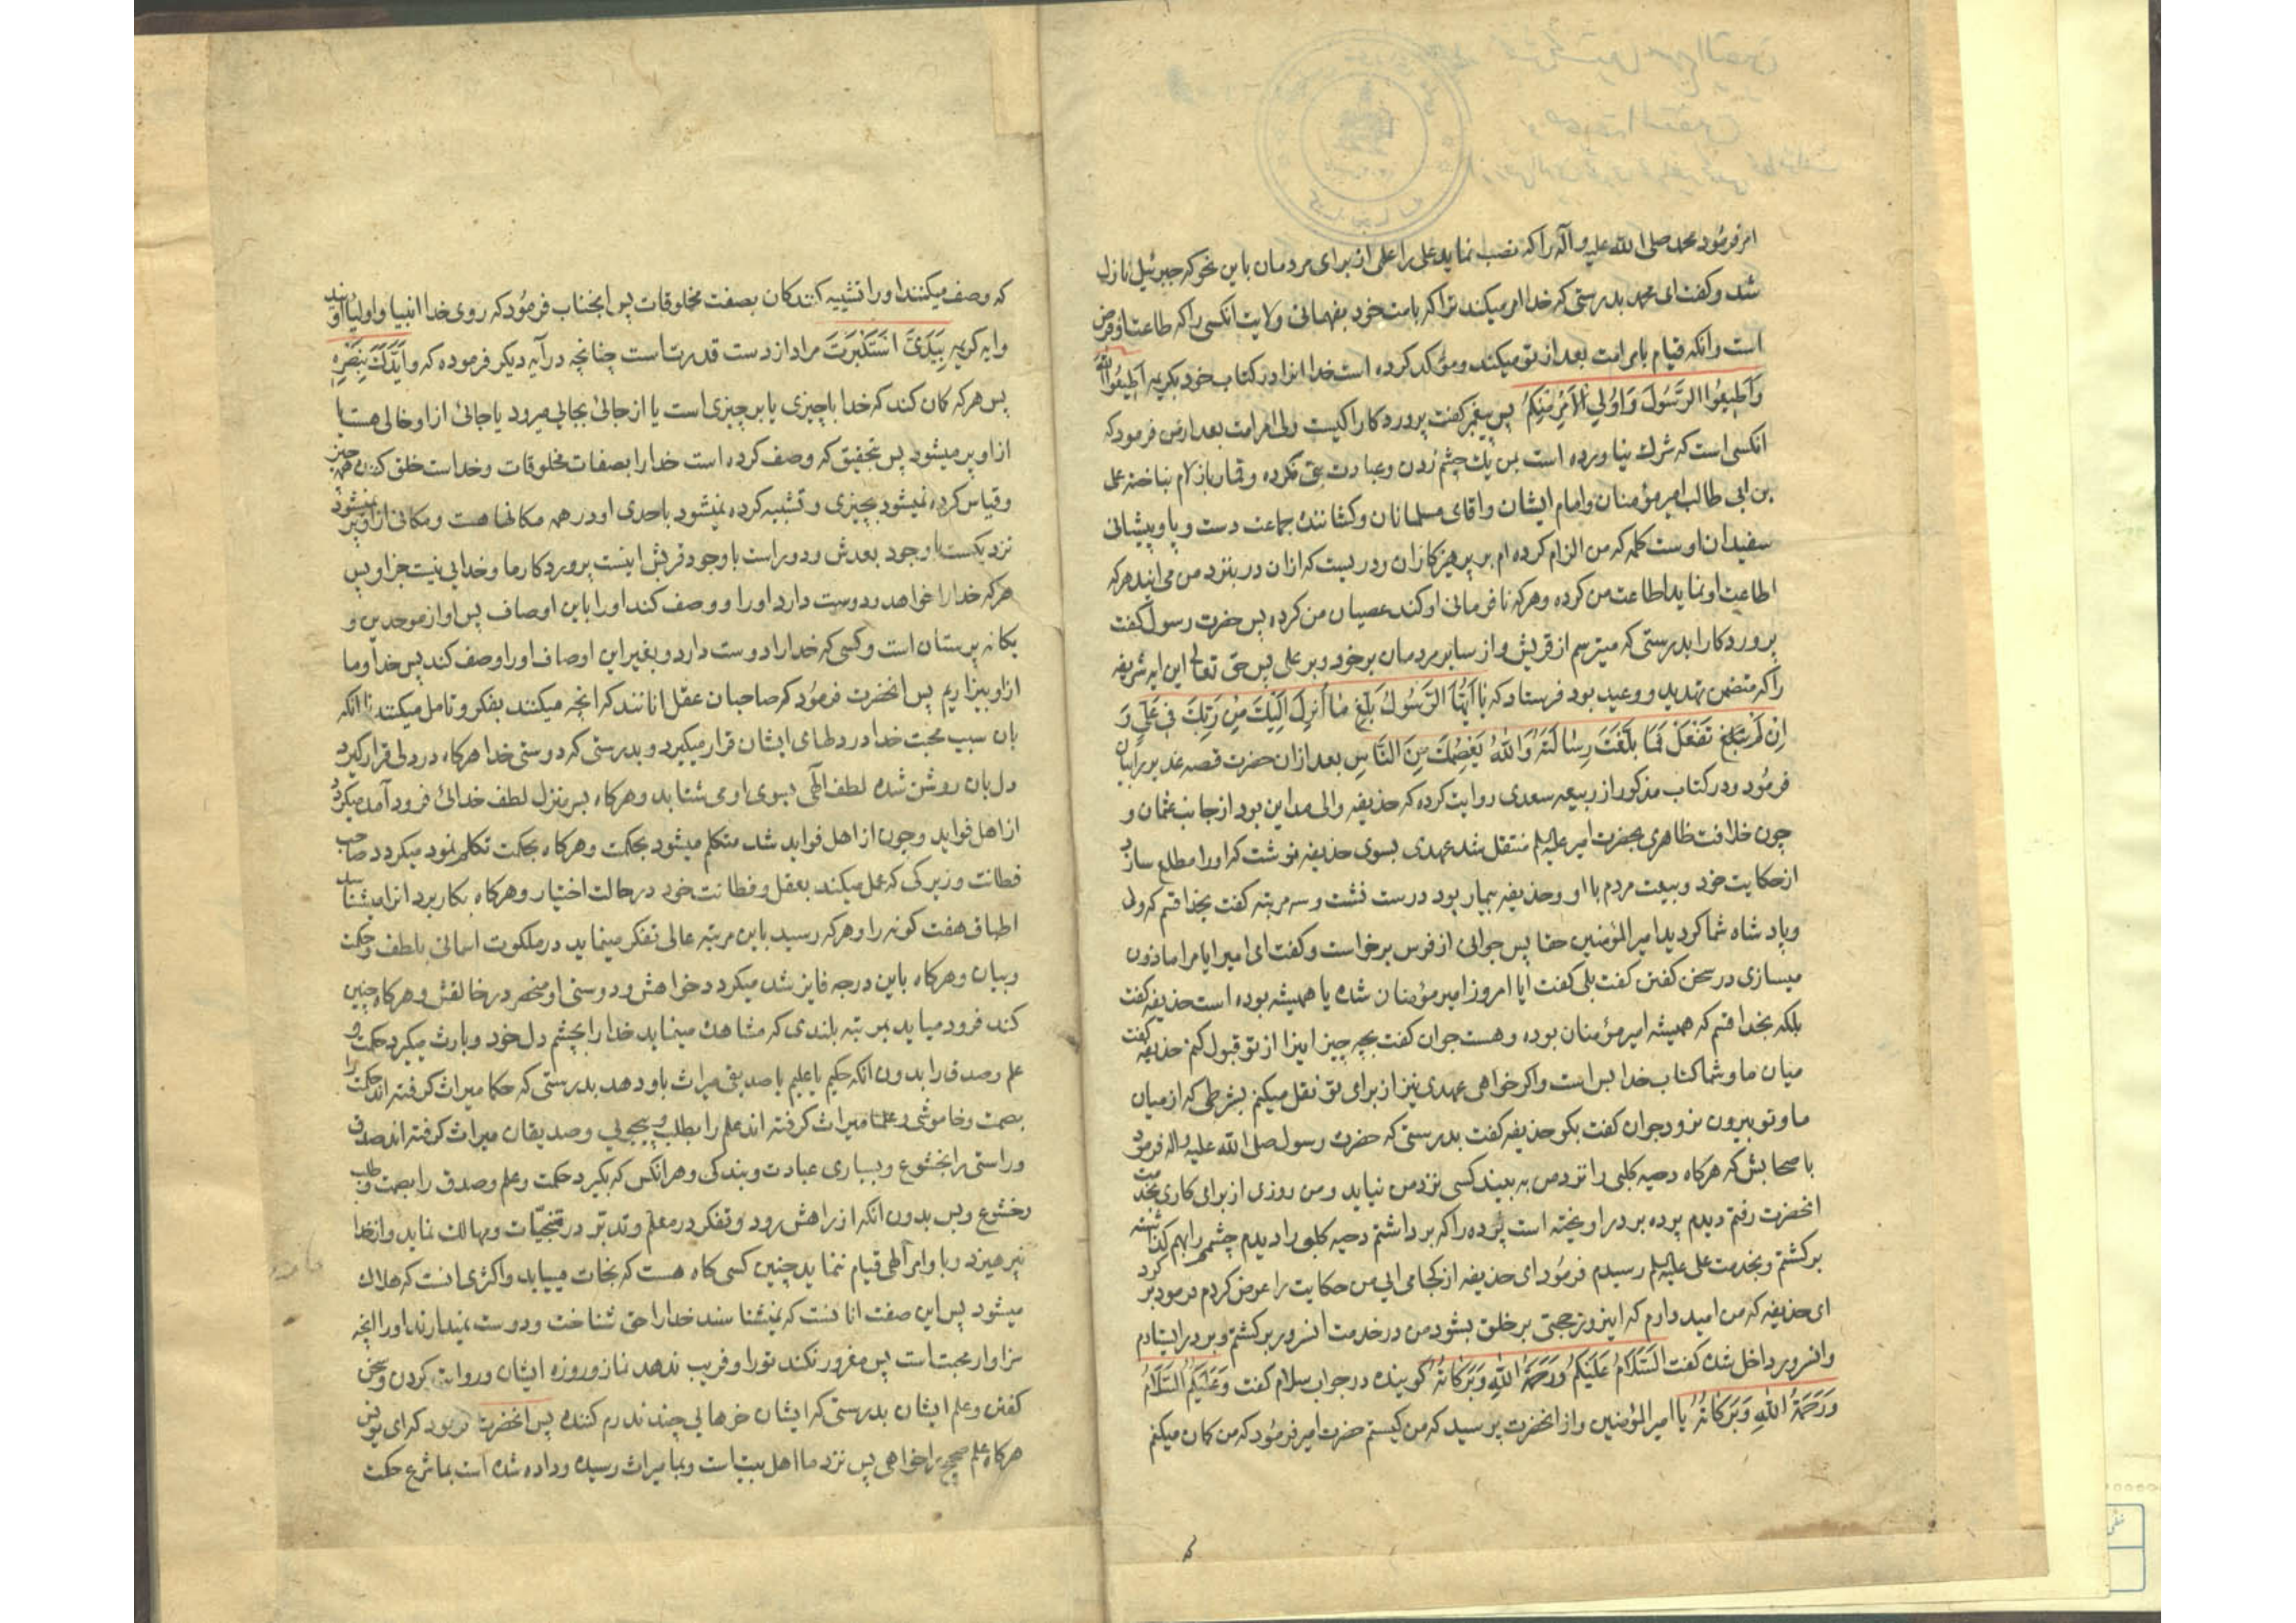 امر فرمود محمد صلی الله علیه و آله را که نصب نماید علی را علم از برای مردمان باین نحو که جبرئیل نازل
شد و کفت ای محمد بدرستی که خدا امر میکند ترا که بامت خود بفهمانی ولایت انکسی را که طاعت او فرض
است و انکه قیام بامر امت بعد از تو میکند و مؤکد کرده است خدا انرا در کتاب خود بکریمه اَطیعُوا اللّٰهَ
وَ اَطیعُوا الرَّسُولَ وَ اُولِی الْاَمْرِ مِنْکُمْ پس پیغمبر کفت پروردکارا کیست ولی امر امت بعد از من فرمود که
انکسی است که شرك نیاورده است بمن یك چشم زدن و عبادت بتی نکرده و قمار بازلام نباخته علی
بن ابی طالب امیر مؤمنان و امام ایشان و اقای مسلمانان و کشاننده جماعت دست و پا و پیشانی
سفیدان اوست کلمه که من الزام کرده ام بر پرهیزکاران و دریست که ازان در بنزد من می ایند هرکه
اطاعت او نماید اطاعت من کرده و هرکه نافرمانی او کند عصیان من کرده پس حضرت رسول کفت
پروردکارا بدرستی که میترسم از قریش و از سایر مردمان بر خود و بر علی پس حق تعالی این ایه شریفه
را که متضمن تهدید و وعید بود فرستاد که یا اَیُّهَا الرَّسُولُ بَلِّغْ مٰا اُنْزِلَ اِلَیْكَ مِنْ رَبِّكَ فی عَلِیٍّ وَ
اِنْ لَمْ تَفْعَلْ فَمٰا بَلَّغْتَ رِسٰالَتَهُ وَ اللّٰهُ یَعْصِمُكَ مِنَ النّٰاسِ بعد ازان حضرت قصه غدیر را بیان
فرمود و در کتاب مذکور از ربیعه سعدی روایت کرده که حذیفه والی مداین بود از جانب عثمان و
چون خلافت ظاهری بحضرت امیر علیه السلم منتقل شد عهدی بسوی حذیفه نوشت که او را مطلع سازد
از حکایت خود و بیعت مردم با او و حذیفه بیمار بود درست نشست و سه مرتبه کفت بخدا قسم که ولی
و پادشاه شما کردید امیر المؤمنین حقا پس جوانی از فرس برخواست و کفت ای امیر ایا مرا ماذون
میسازی در سخن کفتن کفت بلی کفت ایا امروز امیر مؤمنان شده یا همیشه بوده است حذیفه کفت
بلکه بخدا قسم که همیشه امیر مؤمنان بوده و هست جوان کفت بچه چیز اینرا از تو قبول کنم حذیفه کفت
میان ما و شما کتاب خدا بس است و اکر خواهی عهدی نیز از برای تو نقل میکنم بشرطی که از میان
ما و تو بیرون نرود جوان کفت بکو حذیفه کفت بدرستی که حضرت رسول صلی الله علیه و اله فرمود
باصحابش که هرکاه دحیه کلبی را نزد من به بیند کسی نزد من نیاید و من روزی از برای کاری بخدمت
انحضرت رفتم دیدم پرده بر در اویخته است پرده را که برداشتم دحیه کلبی را دیدم چشم را بهم
برکشتم و بخدمت علی علیه السلم رسیدم فرمود ای حذیفه از کجا می ایی من حکایت را عرض کردم فرمود بر کرد
ای حذیفه که من امیدوارم که اینروز حجتی بر خلق بشود من در خدمت انسرور برکشتم و بر در ایستادم
و انسرور داخل شده کفت اَلسَّلَامُ عَلَیْکُمْ وَ رَحْمَةُ اللّٰهِ وَ بَرَکَاتُهُ کوینده در جواب سلام کفت وَ عَلَیْکُمُ السَّلَامُ
وَ رَحْمَةُ اللّٰهِ وَ بَرَکَاتُهُ یا امیر المؤمنین و از انحضرت پرسید که من کیستم حضرت امیر فرمود که من کمان میکنم
که وصف میکنند او را تشبیه کنندکان بصفت مخلوقات پس انجناب فرمود که روی خدا انبیا و اولیا اویند
و ایه کریمه بِیَدَیَّ اَسْتَکْبَرْتَ مراد از دست قدرت است چنانچه در آیه دیکر فرموده که وَ اَیَّدَكَ بِنَصْرِهِ
پس هرکه کمان کند که خدا با چیزی یا بر چیزی است یا از جائی بجائی میرود یا جائی از او خالی هست یا
از او پر میشود پس بتحقیق که وصف کرده است خدا را بصفات مخلوقات و خداست خلق کننده همه چیز
و قیاس کرده نمیشود بچیزی و تشبیه کرده نمیشود باحدی او در همه مکانها هست و مکانی از او پر نمیشود
نزدیکست با وجود بعدش و دور است با وجود قربش اینست پروردکار ما و خدایی نیست جز او پس
هرکه خدا را خواهد و دوست دارد او را و وصف کند او را باین اوصاف پس او از موحدین و
یکانه پرستان است و کسی که خدا را دوست دارد و بغیر این اوصاف او را وصف کند پس خدا و ما
از او بیزاریم پس انحضرت فرمود که صاحبان عقل انانند که انچه میکنند بفکر و تامل میکنند تا انکه
بان سبب محبت خدا در دلهای ایشان قرار میکیرد و بدرستی که دوستی خدا هرکاه در دلی قرار کیرد
دل بان روشن شده لطف الٓهی بسوی او می شتابد و هرکاه بسر منزل لطف خدائی فرود آمد میکردد
از اهل فواید و چون از اهل فواید شد متکلم میشود بحکمت و هرکاه بحکمت تکلم نمود میکردد صاحب
فطانت و زیرکی که عمل میکند بعقل و فطانت خود در حالت اختیار و هرکاه بکار برد انرا میشناسد
اطباق هفت کونه را و هرکه رسید باین مرتبه عالی تفکر مینماید در ملکوت اسمانی بلطف و حکمت
و بیان و هرکاه باین درجه فایز شد میکردد خواهش و دوستی او منحصر در خالقش و هرکاه چنین
کند فرود میاید بمرتبه بلندی که مشاهده مینماید خدا را بچشم دل خود و بارث میکیرد حکمت و
علم و صدق را بدون انکه حکیم یا علیم یا صدیقی میراث باو دهد بدرستی که حکما میراث کرفته اند حکمت را
بصمت و خاموشی و علما میراث کرفته اند علم را بطلب و پیجویی و صدیقان میراث کرفته اند صدق
و راستی را بخشوع و بسیاری عبادت و بندکی و هر انکس که بکیرد حکمت و علم و صدق را بصمت و طلب
و خشوع و بس بدون انکه از راهش رود و تفکر در معلم و تدبر در منجیات و مهالك نماید و از خطا
نپرهیزد و باوامر الٓهی قیام ننماید چنین کسی کاه هست که نجات مییابد و اکثری انست که هلاك
میشود پس این صفت انانست که نمیشناسند خدا را حق شناخت و دوست نمیدارند او را انچه
سزاوار محبت است پس مغرور نکند تو را و فریب ندهد نماز و روزه ایشان و روایت کردن و سخن
کفتن و علم ایشان بدرستی که ایشان خرهایی چندند رم کننده پس انحضرت فرمود که ای یونس
هرکاه علم صحیح را خواهی پس نزد ما اهل بیت است و بما میراث رسیده و داده شده است بما شرع حکمت